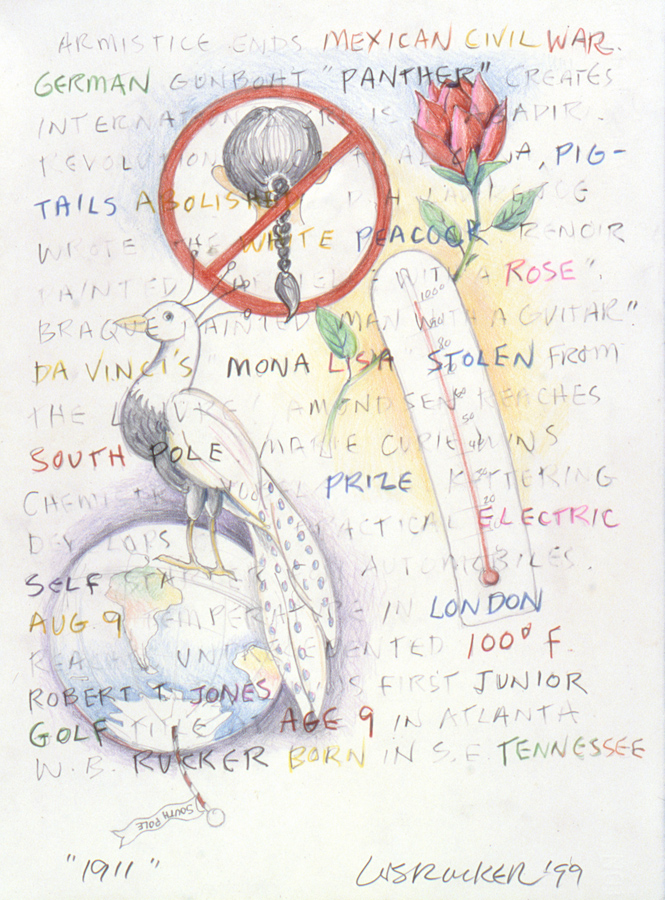 ARMISTICE ENDS MEXICAN CIVIL WAR.
GERMAN GUNBOAT "PANTHER" CREATES
INTERNATIONAL AGADIR.
REVOLUTION CENTRAL CHINA, PIG-
TAILS ABOLISHED D.H. LAWRENCE
WROTE THE WHITE PEACOCK. RENOIR
PAINTED "GABRIELLE WITH A ROSE".
BRAQUE PAINTED "MAN WITH A GUITAR"
DA VINCI'S "MONA LISA" STOLEN FROM
THE LOUVRE! AMUNDSEN REACHES
SOUTH POLE MARIE CURIE WINS
CHEMISTRY NOBEL PRIZE KETTERING
DEVELOPS PRACTICAL ELECTRIC
SELF STARTER AUTOMOBILES.
AUG. 9 TEMPERATURE IN LONDON
REACHES UNPRECEDENTED 100° F.
ROBERT T. JONES WINS FIRST JUNIOR
GOLF TITLE AT AGE 9 IN ATLANTA
W.B. RUCKER BORN IN S.E. TENNESSEE
SOUTH POLE
"1911"
WBRUCKER '99